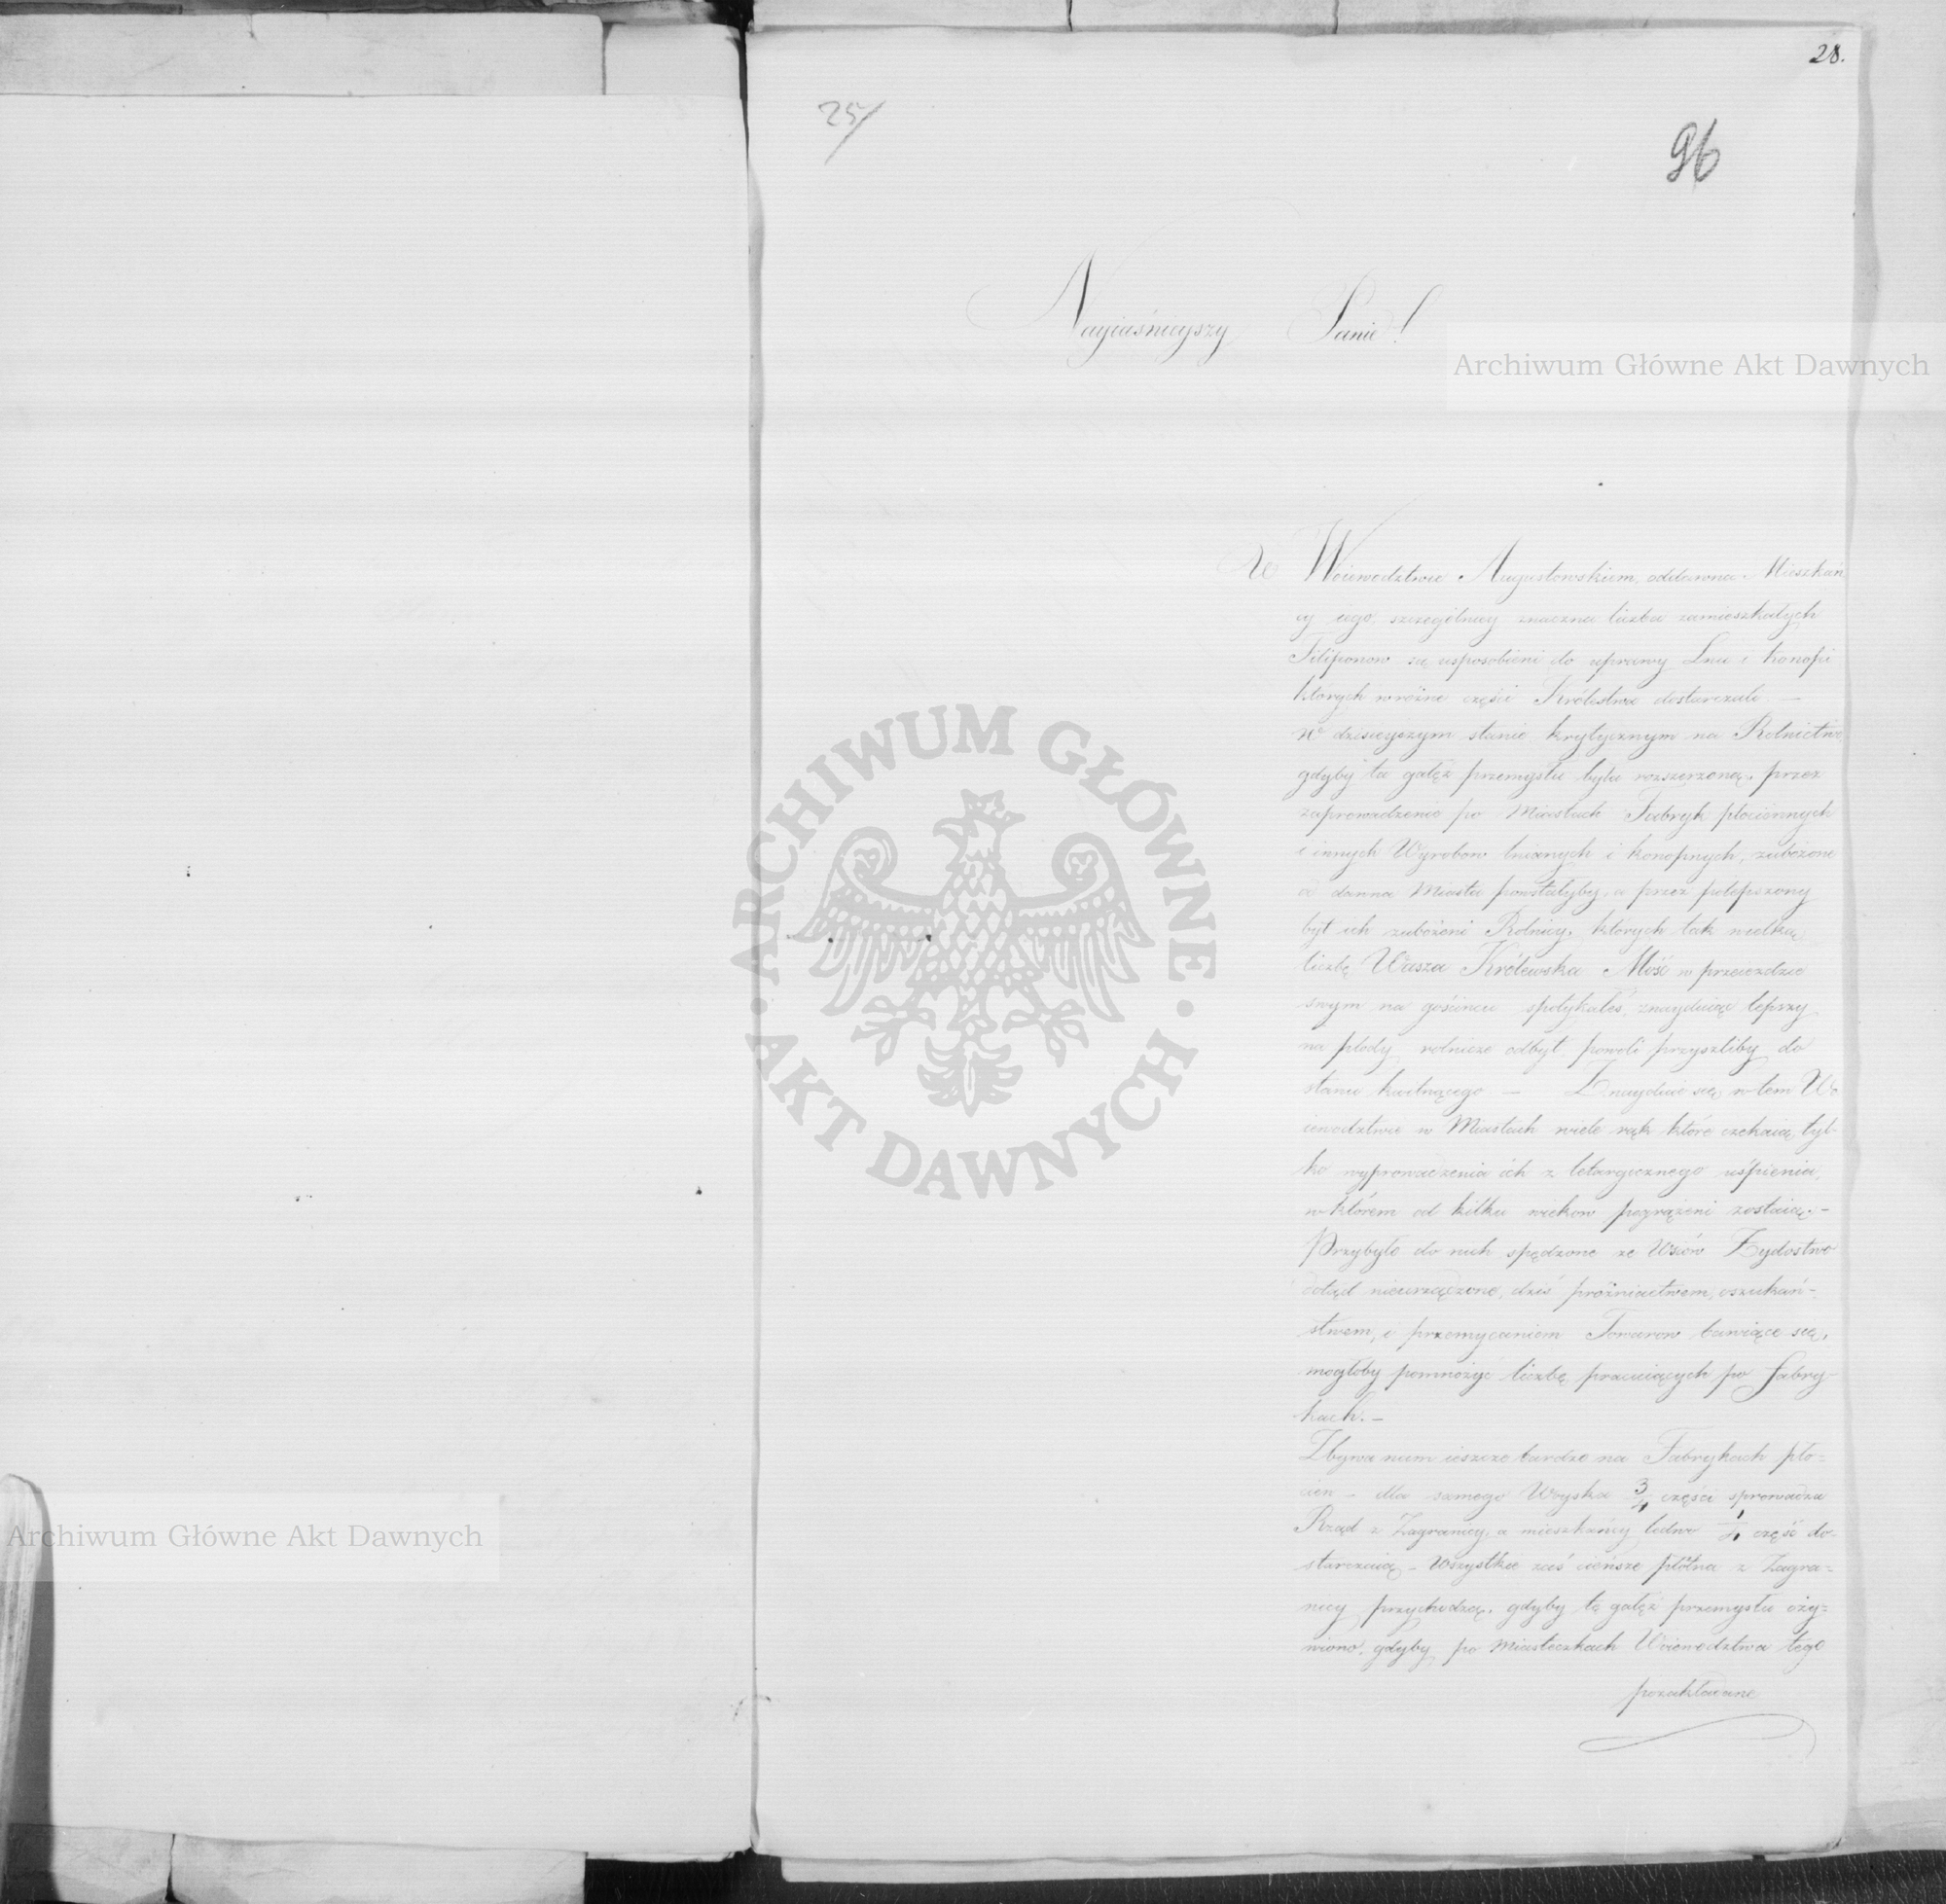 28.
25/
96
Nayiaśnieyszy Panie!
W Woiewodztwie Augustowskiem, oddawna Mieszkań
cy iego, szczególniey znaczna liczba zamieszkałych
Filiponow są usposobieni do uprawy Lnu i konopi
których w różne części Królestwa dostarczali —
W dzisieyszym stanie krytycznym na Rolnictwo
gdyby ta gałęź przemysłu była rozszerzoną, przez
zaprowadzenie po Miastach Fabryk płociennych
i innych Wyrobow lnianych i konopnych, zubożone
od dawna Miasta powstałyby, a przez polepszony
byt ich zubożeni Rolnicy, których tak wielką
liczbę Wasza Królewska Mość w przeieździe
swym na gościńcu spotykałeś, znayduiąc lepszy
na płody rolnicze odbyt, powoli przyszliby do
stanu kwitnącego — Znayduie się w tem Wo
iewodztwie w Miastach wiele rąk które czekaią tyl-
ko wyprowadzenia ich z letargicznego uśpienia,
w którem od kilku wiekow pogrążeni zostaią. —
Przybyłe do nich spędzone ze Wsiów Żydostwo
dotąd nieurządzone, dziś próżniactwem, oszukań-
stwem, i przemycaniem Towarow bawiące się,
mogłoby pomnożyć liczbę pracuiących po fabry-
kach. —
Zbywa nam ieszcze bardzo na Fabrykach płó-
cien — dla samego Woyska 3/4 części sprowadza
Rząd z Zagranicy, a mieszkańcy ledwo 1/4 część do-
starczaią — Wszystkie zaś cieńsze płótna z Zagra-
nicy przychodzą, gdyby tę gałęź przemysłu oży-
wiono, gdyby po Miasteczkach Woiewodztwa tego
pozakładane
Archiwum Główne Akt Dawnych
ARCHIWUM GŁÓWNE • AKT DAWNYCH •
Archiwum Główne Akt Dawnych